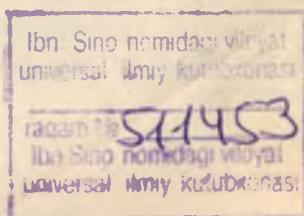 Ibn Sino nomidagi viloyat
universal ilmiy kutubxonasi
raqam №
511453
Ibn Sino nomidagi viloyat
universal ilmiy kutubxonasi